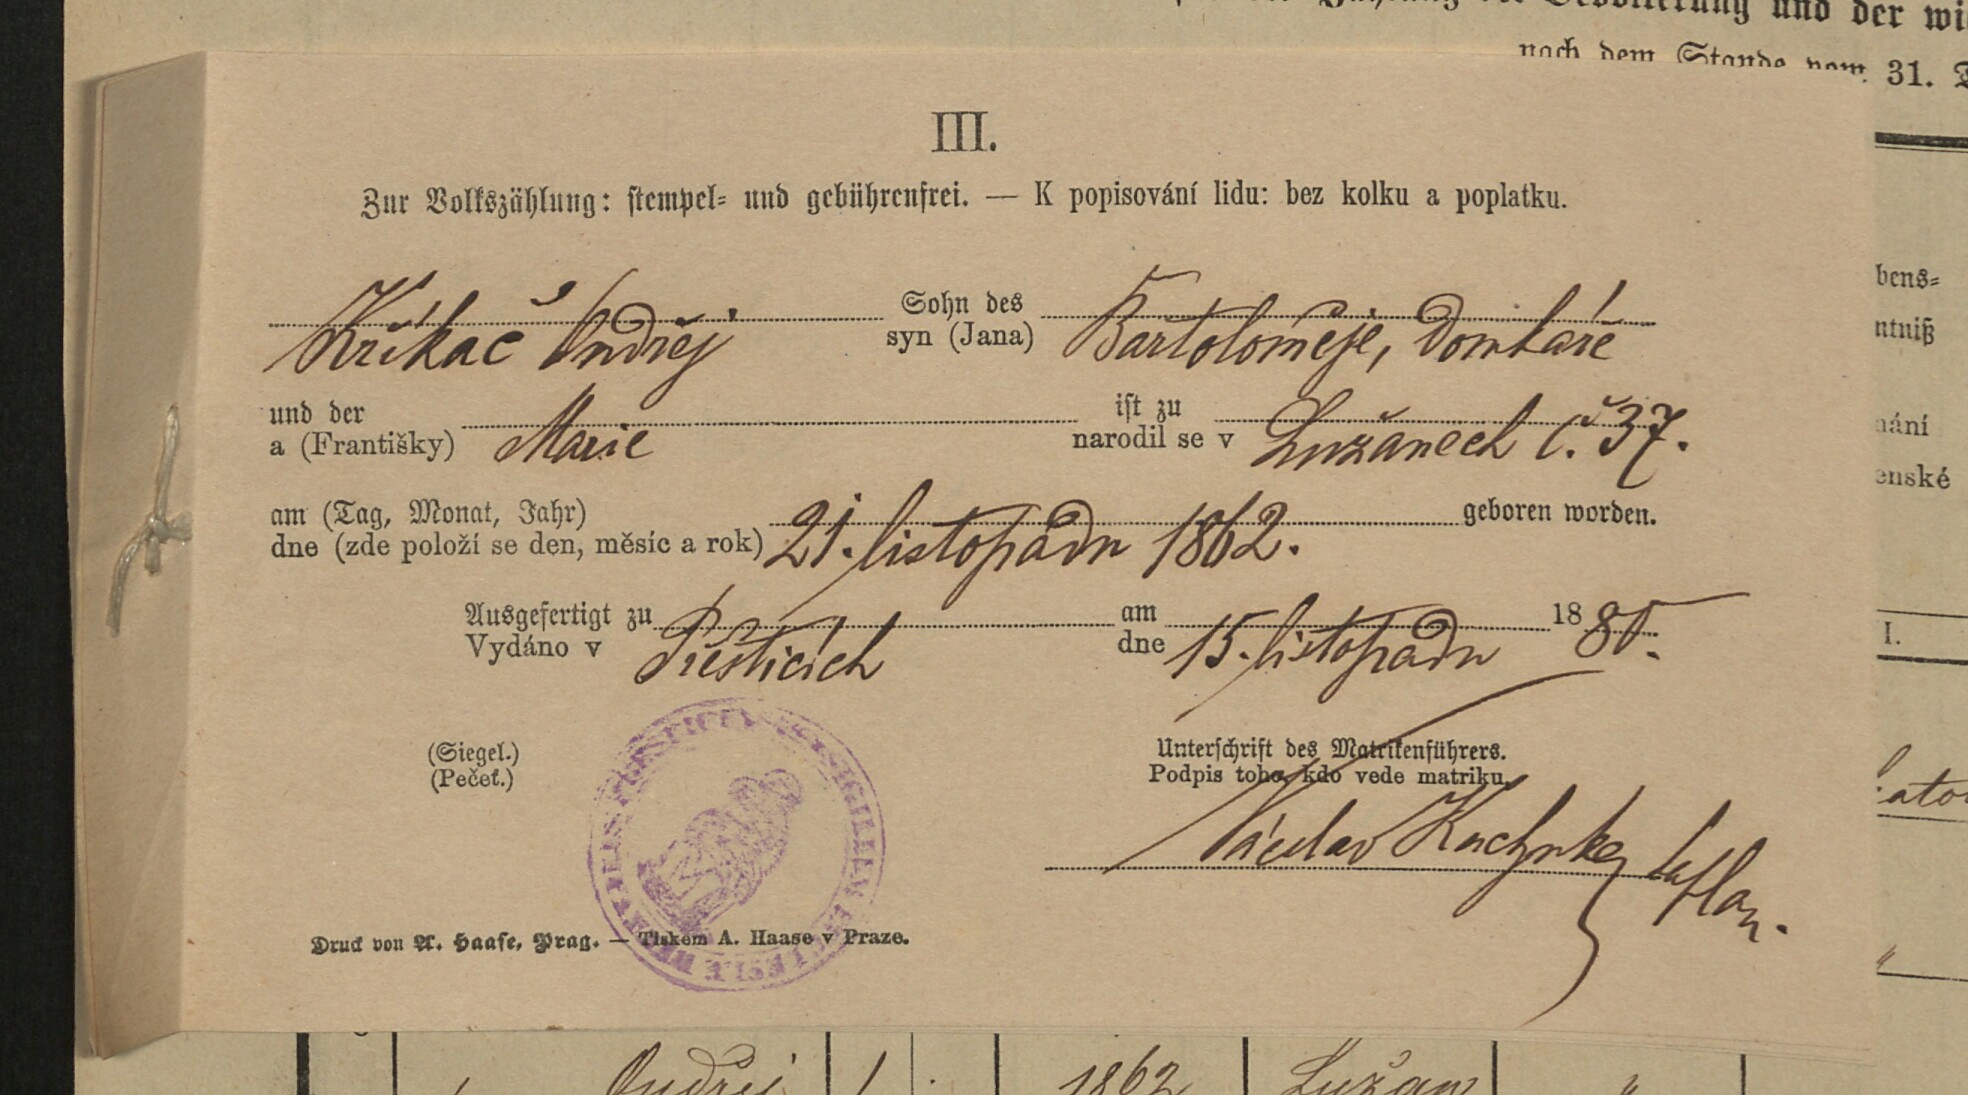 und der
nach dem Stande vom 31.
III.
Zur Volkszählung: stempel- und gebührenfrei. — K popisování lidu: bez kolku a poplatku.
Křikač Ondřej Sohn des Bartoloměje, domkáře
syn (Jana)
und der ist zu
a (Františky) Marie narodil se v Lužanech č. 37.
am (Tag, Monat, Jahr) geboren worden.
dne (zde položí se den, měsíc a rok) 21. listopadu 1862.
Ausgefertigt zu am 18 80.
Vydáno v Přešticích dne 15. listopadu
(Siegel.) Unterschrift des Matrikenführers.
(Pečeť.) Podpis toho, kdo vede matriku.
Václav
Druck von A. Haase, Prag. — Tiskem A. Haase v Praze.
bens-
ntniß
nání
enské
I.
Ondřej 1 1862 Lužan "